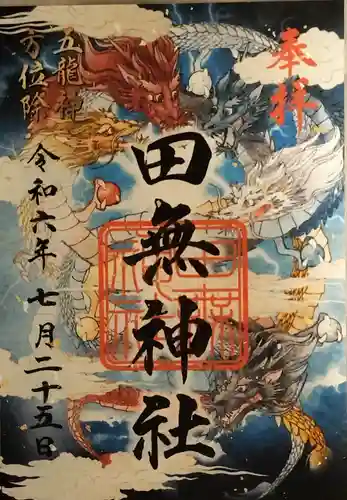 奉拝
田無神社
五龍神
方位除
令和六年 七月二十五日